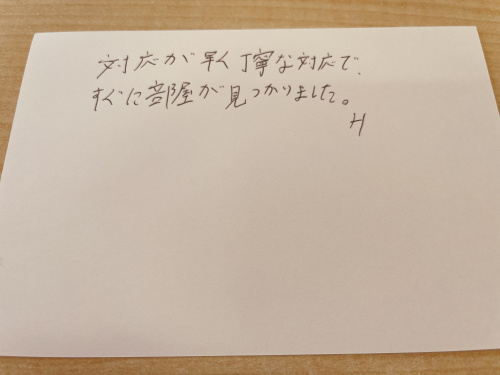 対応が早く丁寧な対応で、
すぐに部屋が見つかりました。
H